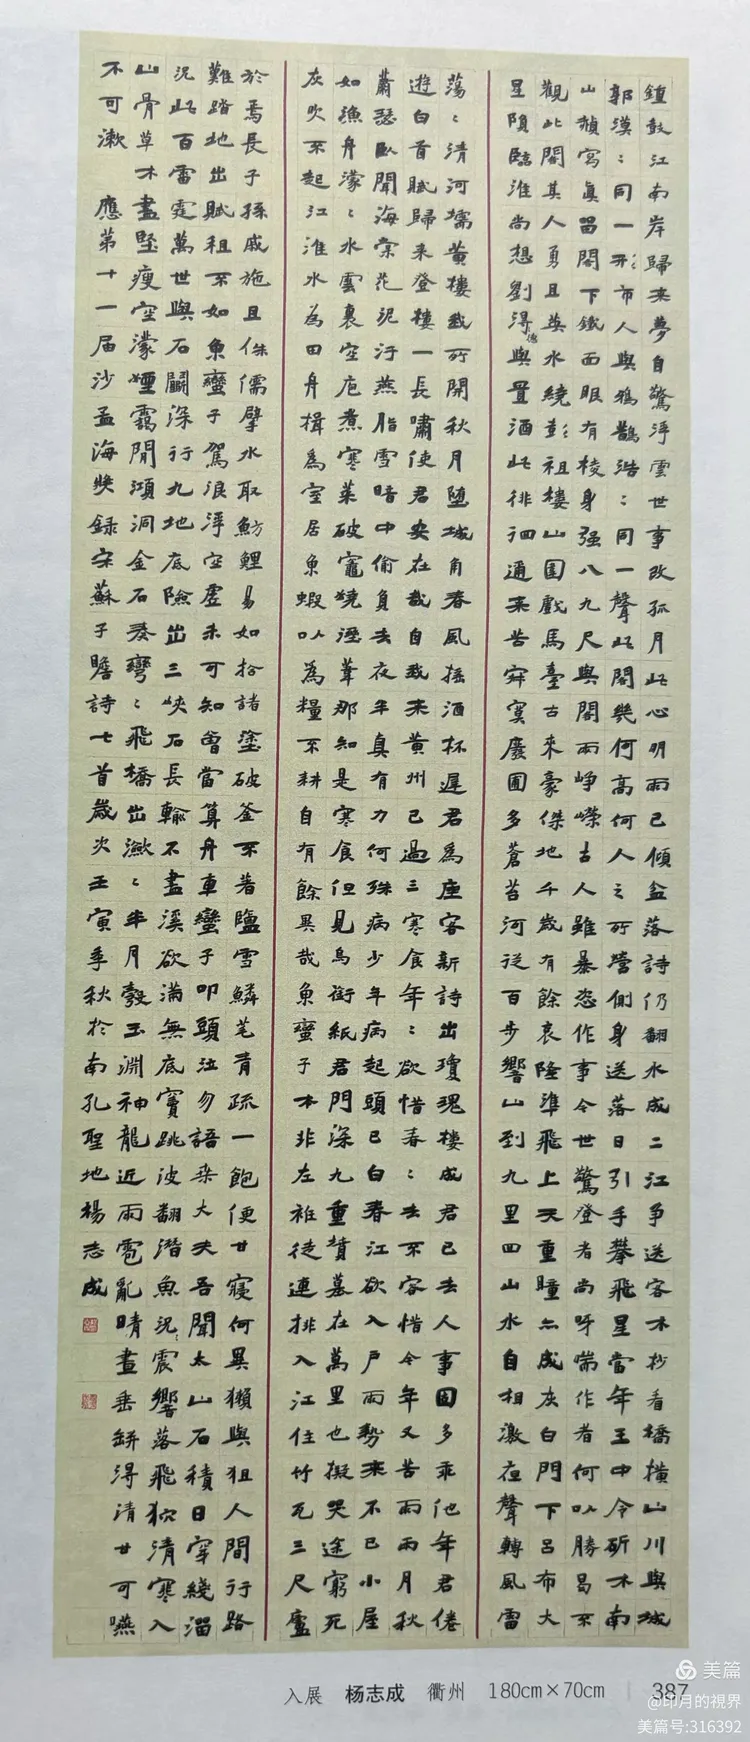 鐘鼓江南岸歸來夢自驚浮雲世事改孤月此心明雨已傾盆落詩仍翻水成二江爭送客木杪看橋橫山川與城
郭漠〻同一形市人與鴉鵲浩〻同一聲此閣幾何高何人之所營側身送落日引手攀飛星當年王中令斫木南
山赬寫真留閣下鐵面眼有棱身强八九尺與閣兩崢嶸古人雖暴恣作事令世驚登者尚呀喘作者何以勝曷不
觀此閣其人勇且英水繞彭祖樓山圍戲馬臺古來豪傑地千歲有餘哀隆準飛上天重瞳亦成灰白門下呂布大
星隕臨淮尚想劉淂德與置酒此徘徊通來苦寂寞廢圃多蒼苔河從百步響山到九里四山水自相激夜聲轉風雷
蕩〻清河壖黃樓我所開秋月墮城角春風搖酒杯遲君為座客新詩出瓊瑰樓成君已去人事固多乖他年君倦
遊白首賦歸来登樓一長嘯使君安在哉自我来黃州已過三寒食年〻欲惜春〻去不容惜今年又苦雨兩月秋
蕭瑟臥聞海棠花泥汙燕脂雪暗中偷負去夜半真有力何殊病少年病起頭已白春江欲入戶雨勢来不已小屋
如漁舟濛〻水雲裏空庖煮寒菜破竈燒溼葦那知是寒食但見烏銜紙君門深九重墳墓在萬里也擬哭途窮死
灰吹不起江淮水為田舟楫為室居魚蝦以為糧不耕自有餘異哉魚蠻子本非左衽徒連排入江住竹瓦三尺廬
於焉長子孫戚施且侏儒擘水取魴鯉易如拾諸塗破釜不著鹽雪鱗芼青疏一飽便甘寢何異獺與狙人間行路
難踏地出賦租不如魚蠻子駕浪浮空虛未可知會當算舟車蠻子叩頭泣勿語桑大夫吾聞太山石積日穿綫溜
況此百雷霆萬世與石鬭深行九地底險出三峽石長輸不盡溪欲滿無底竇跳波翻潛魚況震響落飛狖清寒入
山骨草木盡堅瘦空濛煙靄間澒洞金石奏彎〻飛橋出瀲〻半月彀玉淵神龍近雨雹亂晴晝垂缾得清甘可嚥
不可漱 應第十一届沙孟海獎録宋蘇子瞻詩七首歲次壬寅年秋於南孔聖地楊志成
入展 杨志成 衢州 180cm×70cm 387
美篇
@印月的視界
美篇号:316392